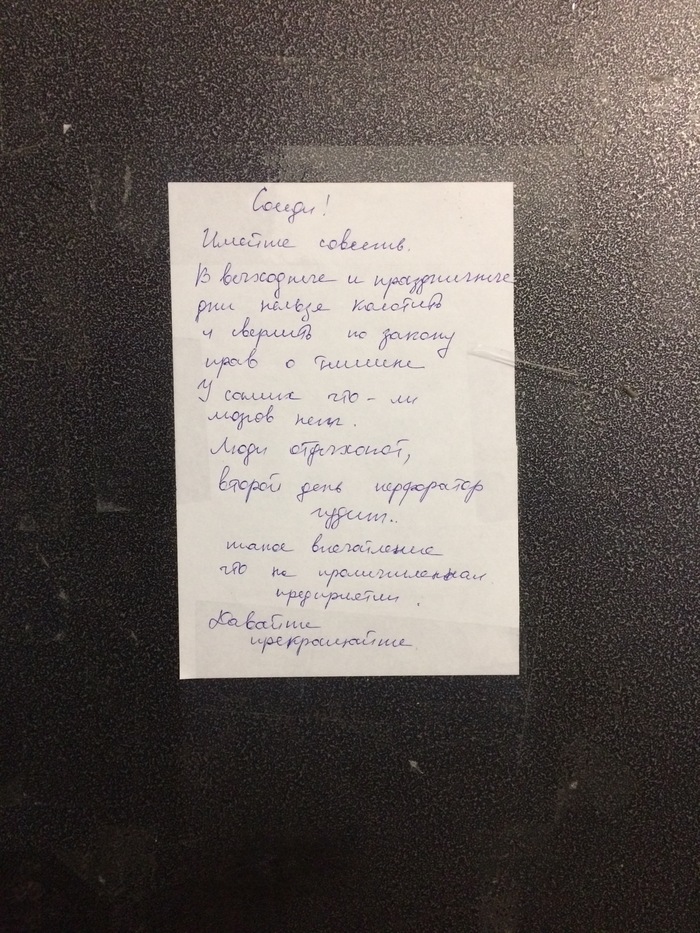 Соседи!
Имейте совесть.
В выходные и праздничные
дни нельзя колотить
и сверлить по закону
прав о тишине
У самих что-ли
мозгов нет.
Люди отдыхают,
второй день перфоратор
гудит..
такое впечатление
что на промышленном
предприятии.
Давайте
прекращайте.